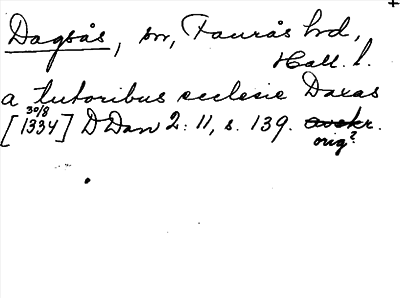 Dagsås, sn, Faurås hd,
Hall. l.
a tutoribus ecclesie Daxas
[30/8 1334] DDan 2:11, s. 139. avskr.
orig?